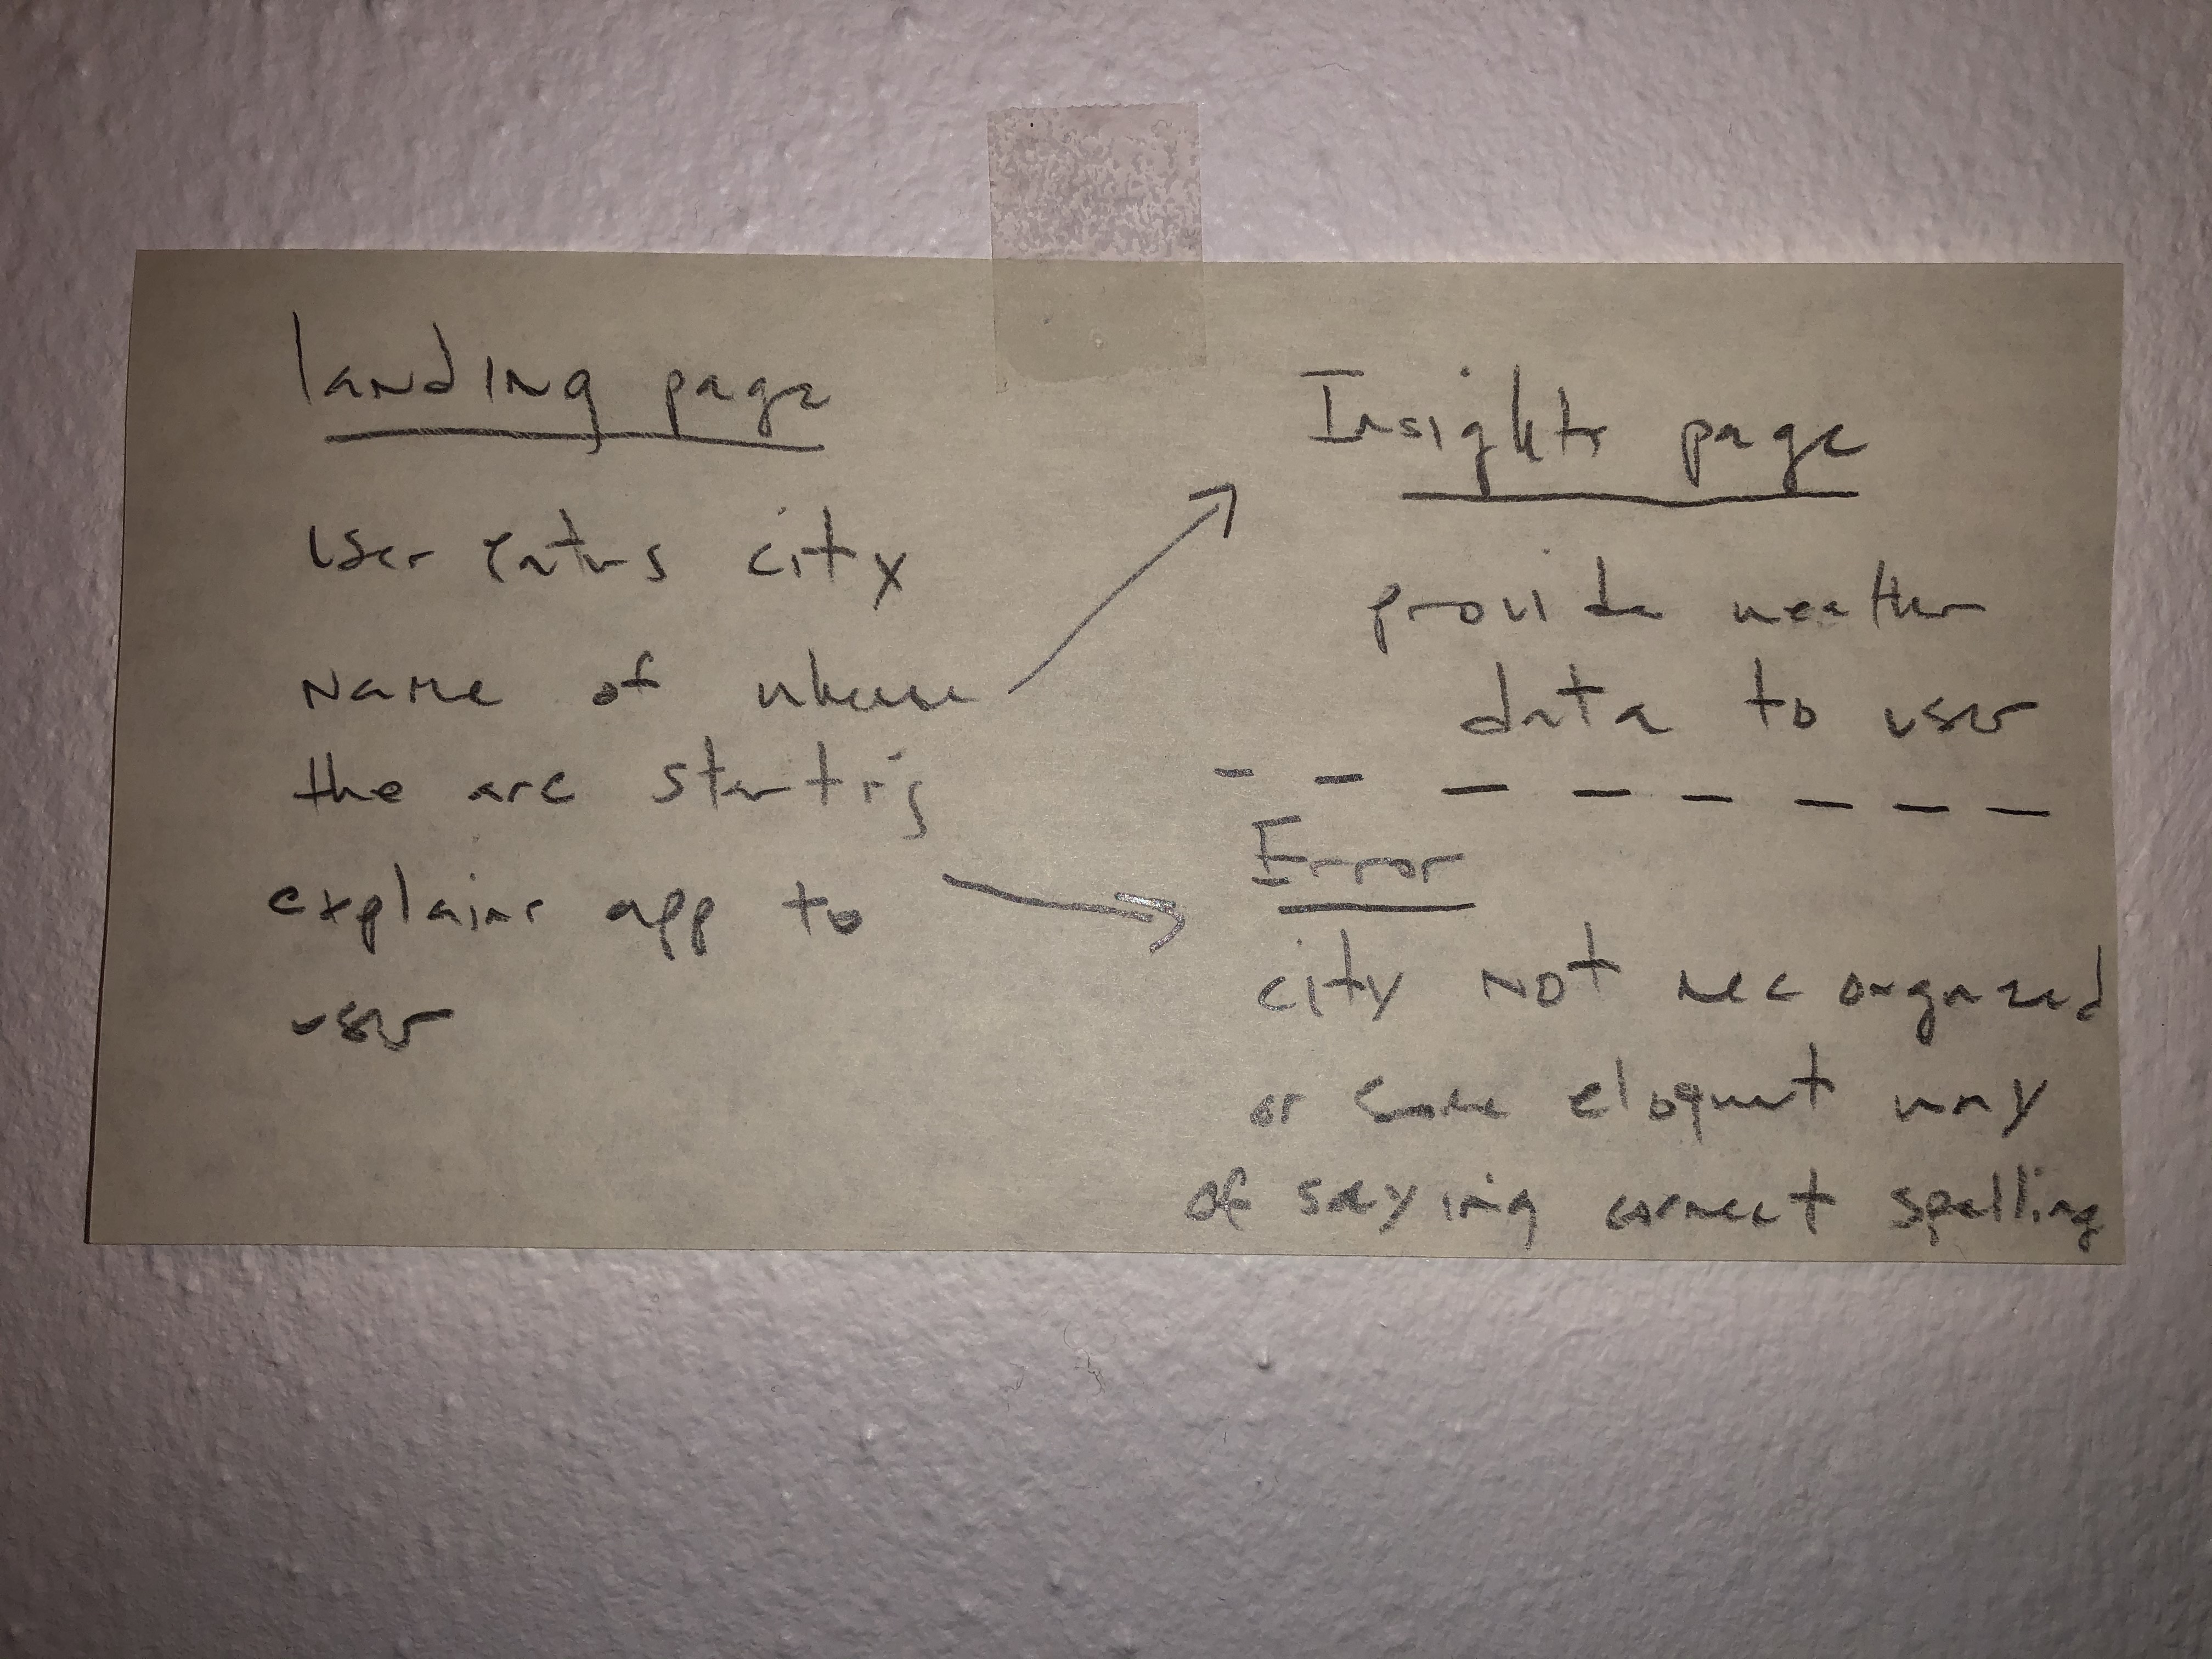 landing page
User enters city
Name of where
the are starting
explains app to
user
Insights page
provide weather
data to user
Error
city not recorganized
or some eloquent way
of saying correct spelling